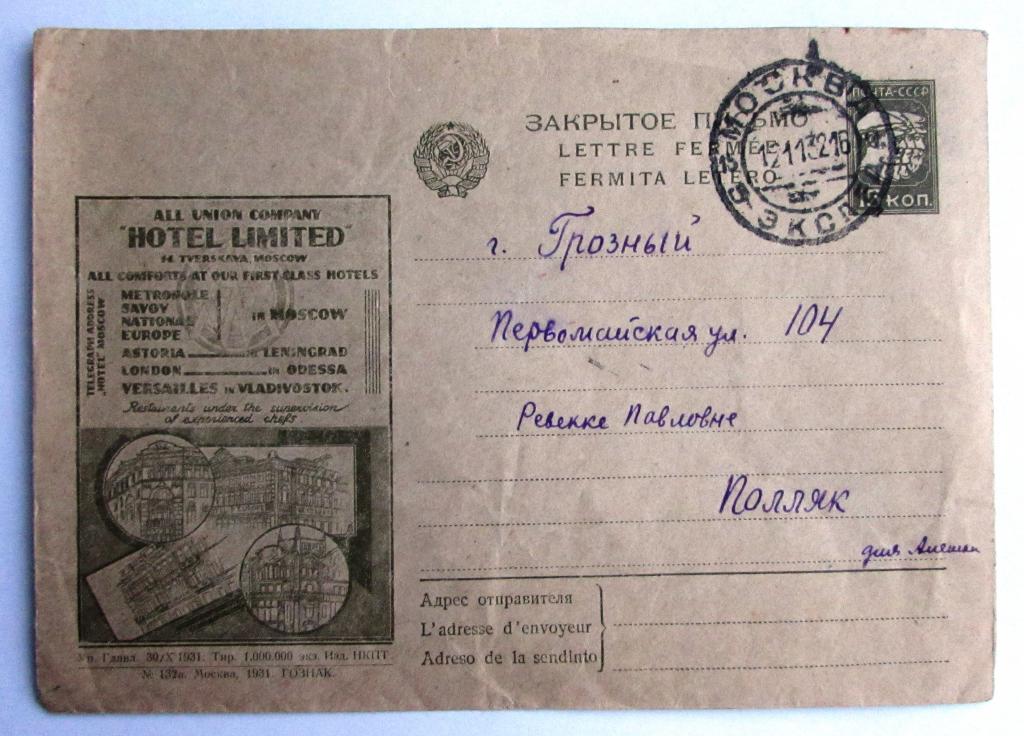 ЗАКРЫТОЕ ПИСЬМО
LETTRE FERMÉE
FERMITA LETERO
ПОЧТА-СССР
15 КОП.
МОСКВА
12 11 32 16
5 ЭКСПЕД.
ALL UNION COMPANY
"HOTEL LIMITED"
14. TVERSKAYA, MOSCOW
ALL COMFORTS AT OUR FIRST CLASS HOTELS
TELEGRAPH ADDRESS
"HOTEL" MOSCOW
METROPOLE
SAVOY
NATIONAL
EUROPE
IN MOSCOW
ASTORIA IN LENINGRAD
LONDON IN ODESSA
VERSAILLES IN VLADIVOSTOK.
Restaurants under the supervision
of experienced chefs.
г. Грозный
Первомайская ул. 104
Ревекке Павловне
Полляк
для
Адрес отправителя
L'adresse d'envoyeur
Adreso de la sendinto
Уп. Главл. 30/X 1931. Тир. 1.000.000 экз. Изд. НКПТ
№ 132а. Москва, 1931. ГОЗНАК.